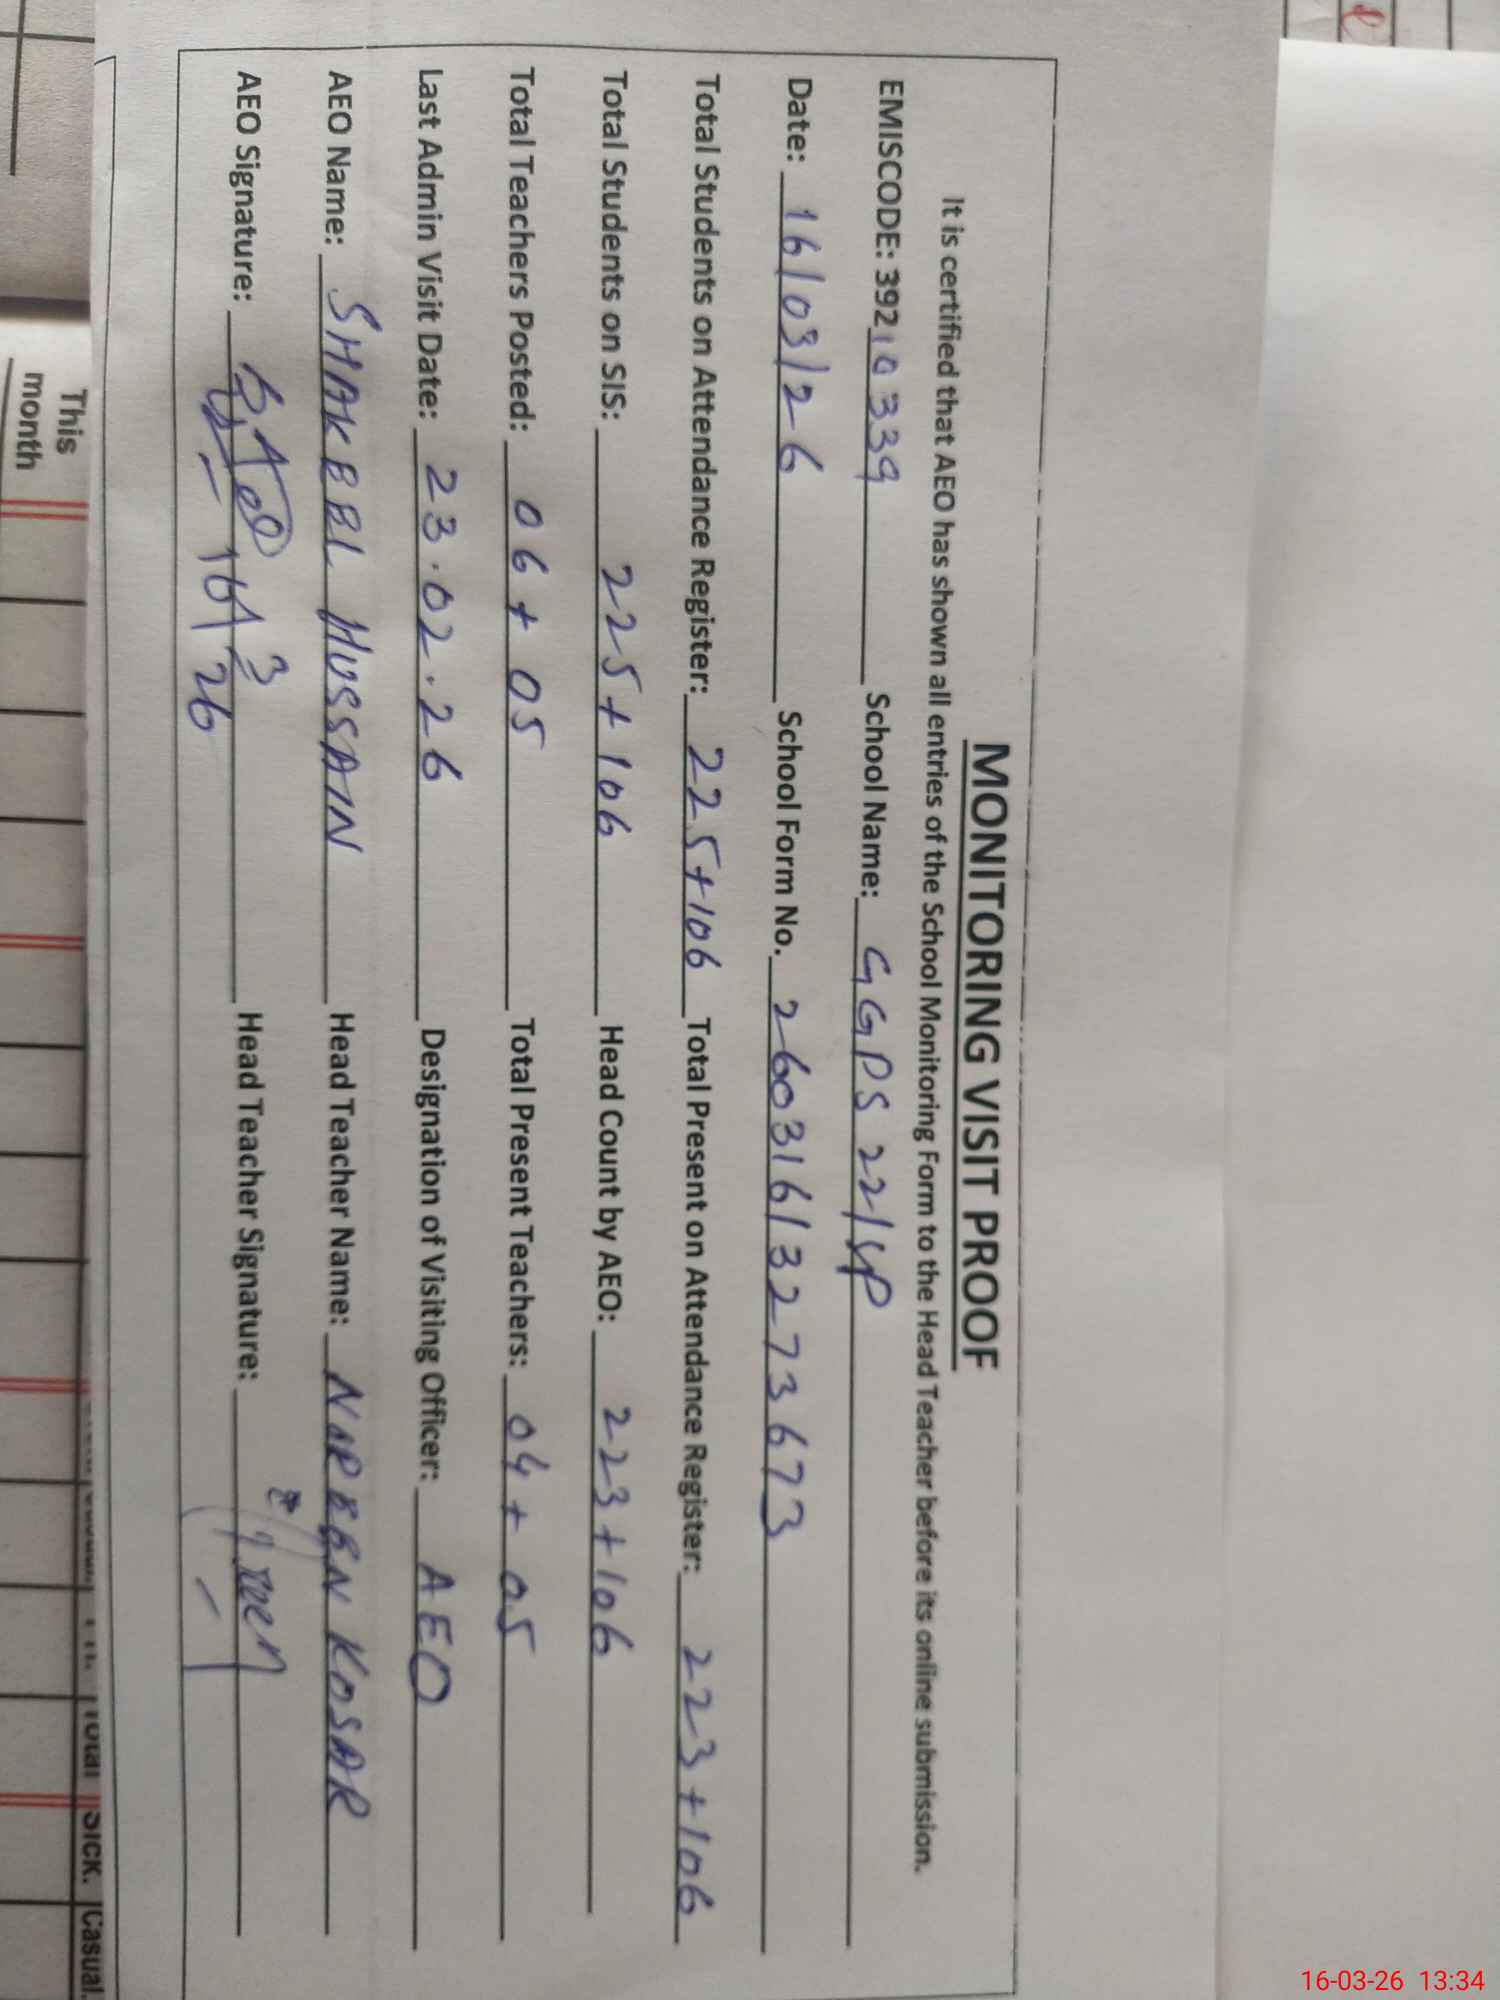 MONITORING VISIT PROOF
It is certified that AEO has shown all entries of the School Monitoring Form to the Head Teacher before its online submission.
EMISCODE: 39210339 School Name: GGPS 221GP
Date: 16/03/26 School Form No. 26031613273673
Total Students on Attendance Register: 225+106 Total Present on Attendance Register: 223+106
Total Students on SIS: 225+106 Head Count by AEO: 223+106
Total Teachers Posted: 06+05 Total Present Teachers: 04+05
Last Admin Visit Date: 23.02.26 Designation of Visiting Officer: AEO
AEO Name: SHAKEEL HUSSAIN Head Teacher Name: NOREEN KOSAR
AEO Signature: 16/3 26 Head Teacher Signature:
This
month
Total SICK. Casual.
16-03-26 13:34